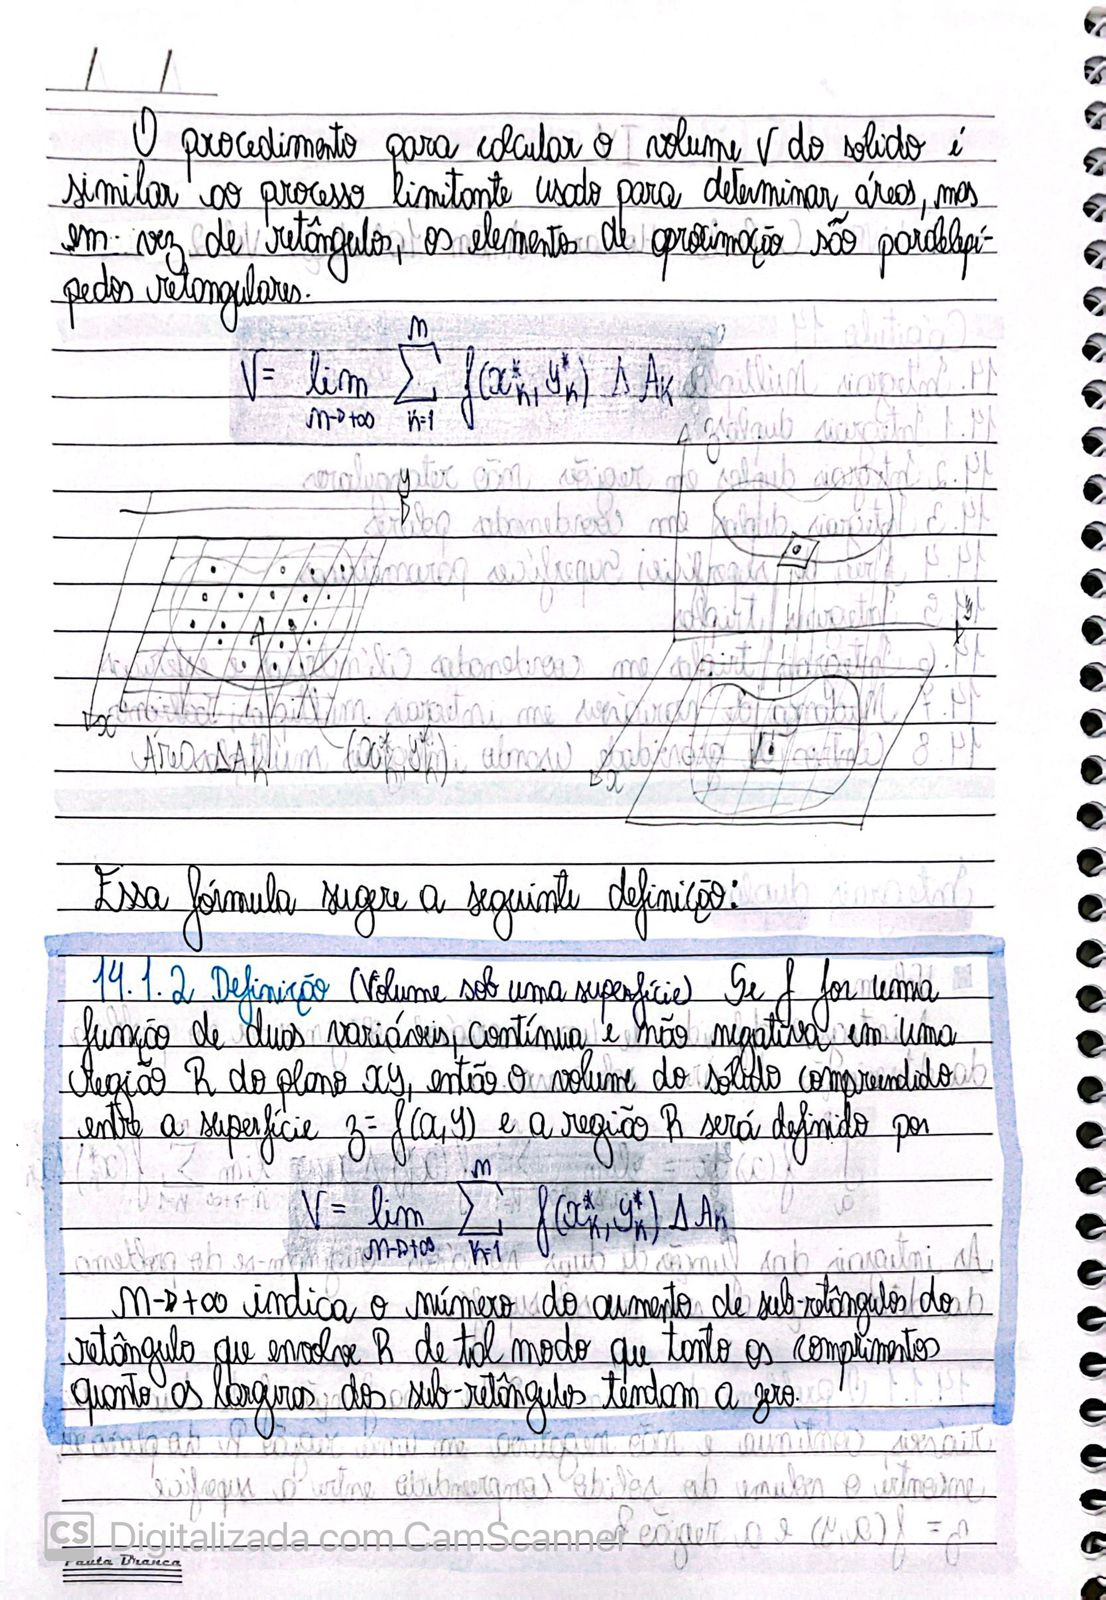 O procedimento para calcular o volume V do sólido é
similar ao processo limitante usado para determinar áreas, mas
em vez de retângulos, os elementos de aproximação são paralelepí-
pedos retangulares.
V = lim n→+∞ n Σ k=1 f(x*k, y*k) Δ Ak
y
x
Área ΔAk
(x*k, y*k)
y
x
Essa fórmula sugere a seguinte definição:
14.1.2 Definição (Volume sob uma superfície) Se f for uma
função de duas variáveis, contínua e não negativa em uma
região R do plano xy, então o volume do sólido compreendido
entre a superfície z = f(x,y) e a região R será definido por
V = lim n→+∞ n Σ k=1 f(x*k, y*k) Δ Ak
n→+∞ indica o número do aumento de sub-retângulos do
retângulo que envolve R de tal modo que tanto os comprimentos
quanto as larguras dos sub-retângulos tendam a zero.
CS Digitalizada com CamScanner
Pauta Branca